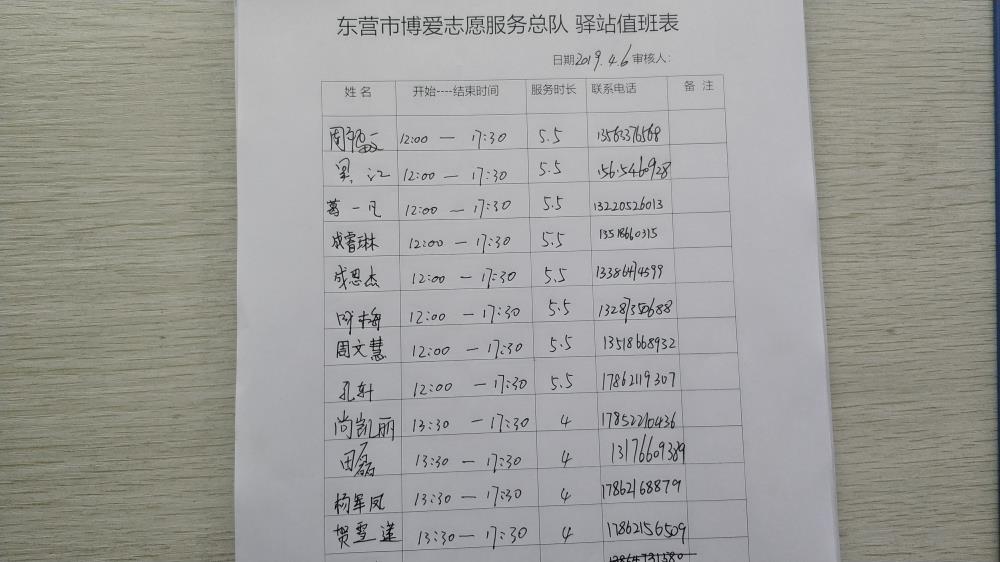 东营市博爱志愿服务总队 驿站值班表
日期2019.4.6 审核人:
姓名 开始----结束时间 服务时长 联系电话 备 注
12:00 — 17:30 5.5 13563376568
吴江 12:00 — 17:30 5.5 15615460928
葛一凡 12:00 — 17:30 5.5 13220526013
成睿琳 12:00 — 17:30 5.5 13518660315
成思杰 12:00 — 17:30 5.5 13386474599
12:00 — 17:30 5.5 13287350688
周文慧 12:00 — 17:30 5.5 13518668932
孔轩 12:00 — 17:30 5.5 17862119307
尚凯丽 13:30 — 17:30 4 17852210436
田磊 13:30 — 17:30 4 13176609389
杨军凤 13:30 — 17:30 4 17862168879
贺雪莲 13:30 — 17:30 4 17862156509